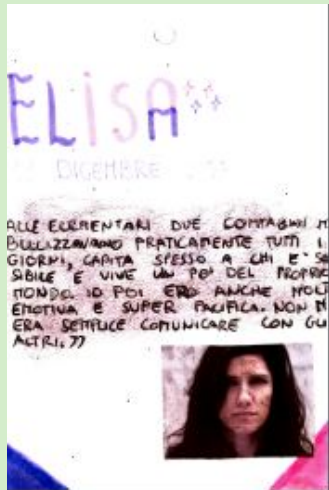 ELISA
DICEMBRE
ALLE ELEMENTARI DUE COMPAGNI M
BULLIZZAVANO PRATICAMENTE TUTTI I
GIORNI, CAPITA SPESSO A CHI E' SE
SIBILE E VIVE UN PO' DEL PROPRIO
MONDO. IO POI ERO ANCHE MOLT
EMOTIVA E SUPER PACIFICA. NON M
ERA SEMPLICE COMUNICARE CON GLI
ALTRI. ”